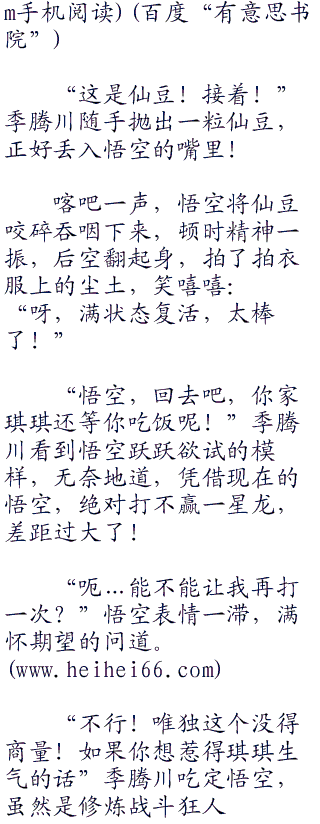 m手机阅读)(百度“有意思书
院”)
“这是仙豆！接着！”
季腾川随手抛出一粒仙豆，
正好丢入悟空的嘴里！
喀吧一声，悟空将仙豆
咬碎吞咽下来，顿时精神一
振，后空翻起身，拍了拍衣
服上的尘土，笑嘻嘻：
“呀，满状态复活，太棒
了！”
“悟空，回去吧，你家
琪琪还等你吃饭呢！”季腾
川看到悟空跃跃欲试的模
样，无奈地道，凭借现在的
悟空，绝对打不赢一星龙，
差距过大了！
“呃…能不能让我再打
一次？”悟空表情一滞，满
怀期望的问道。
(www.heihei66.com)
“不行！唯独这个没得
商量！如果你想惹得琪琪生
气的话”季腾川吃定悟空，
虽然是修炼战斗狂人